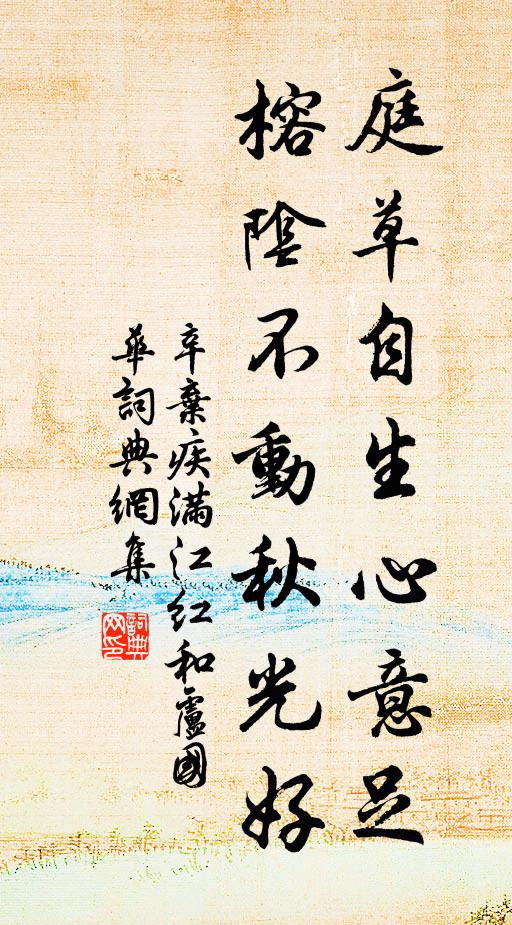 庭草自生心意足
榕陰不動秋光好
辛棄疾滿江红和盧國
華詞典網集
詞典网印